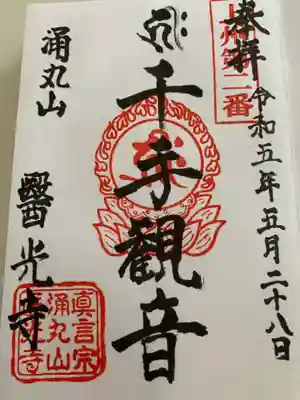 奉拝
上州第二番
令和五年五月二十八日
千手観音
涌丸山
醫光寺
真言宗
涌丸山